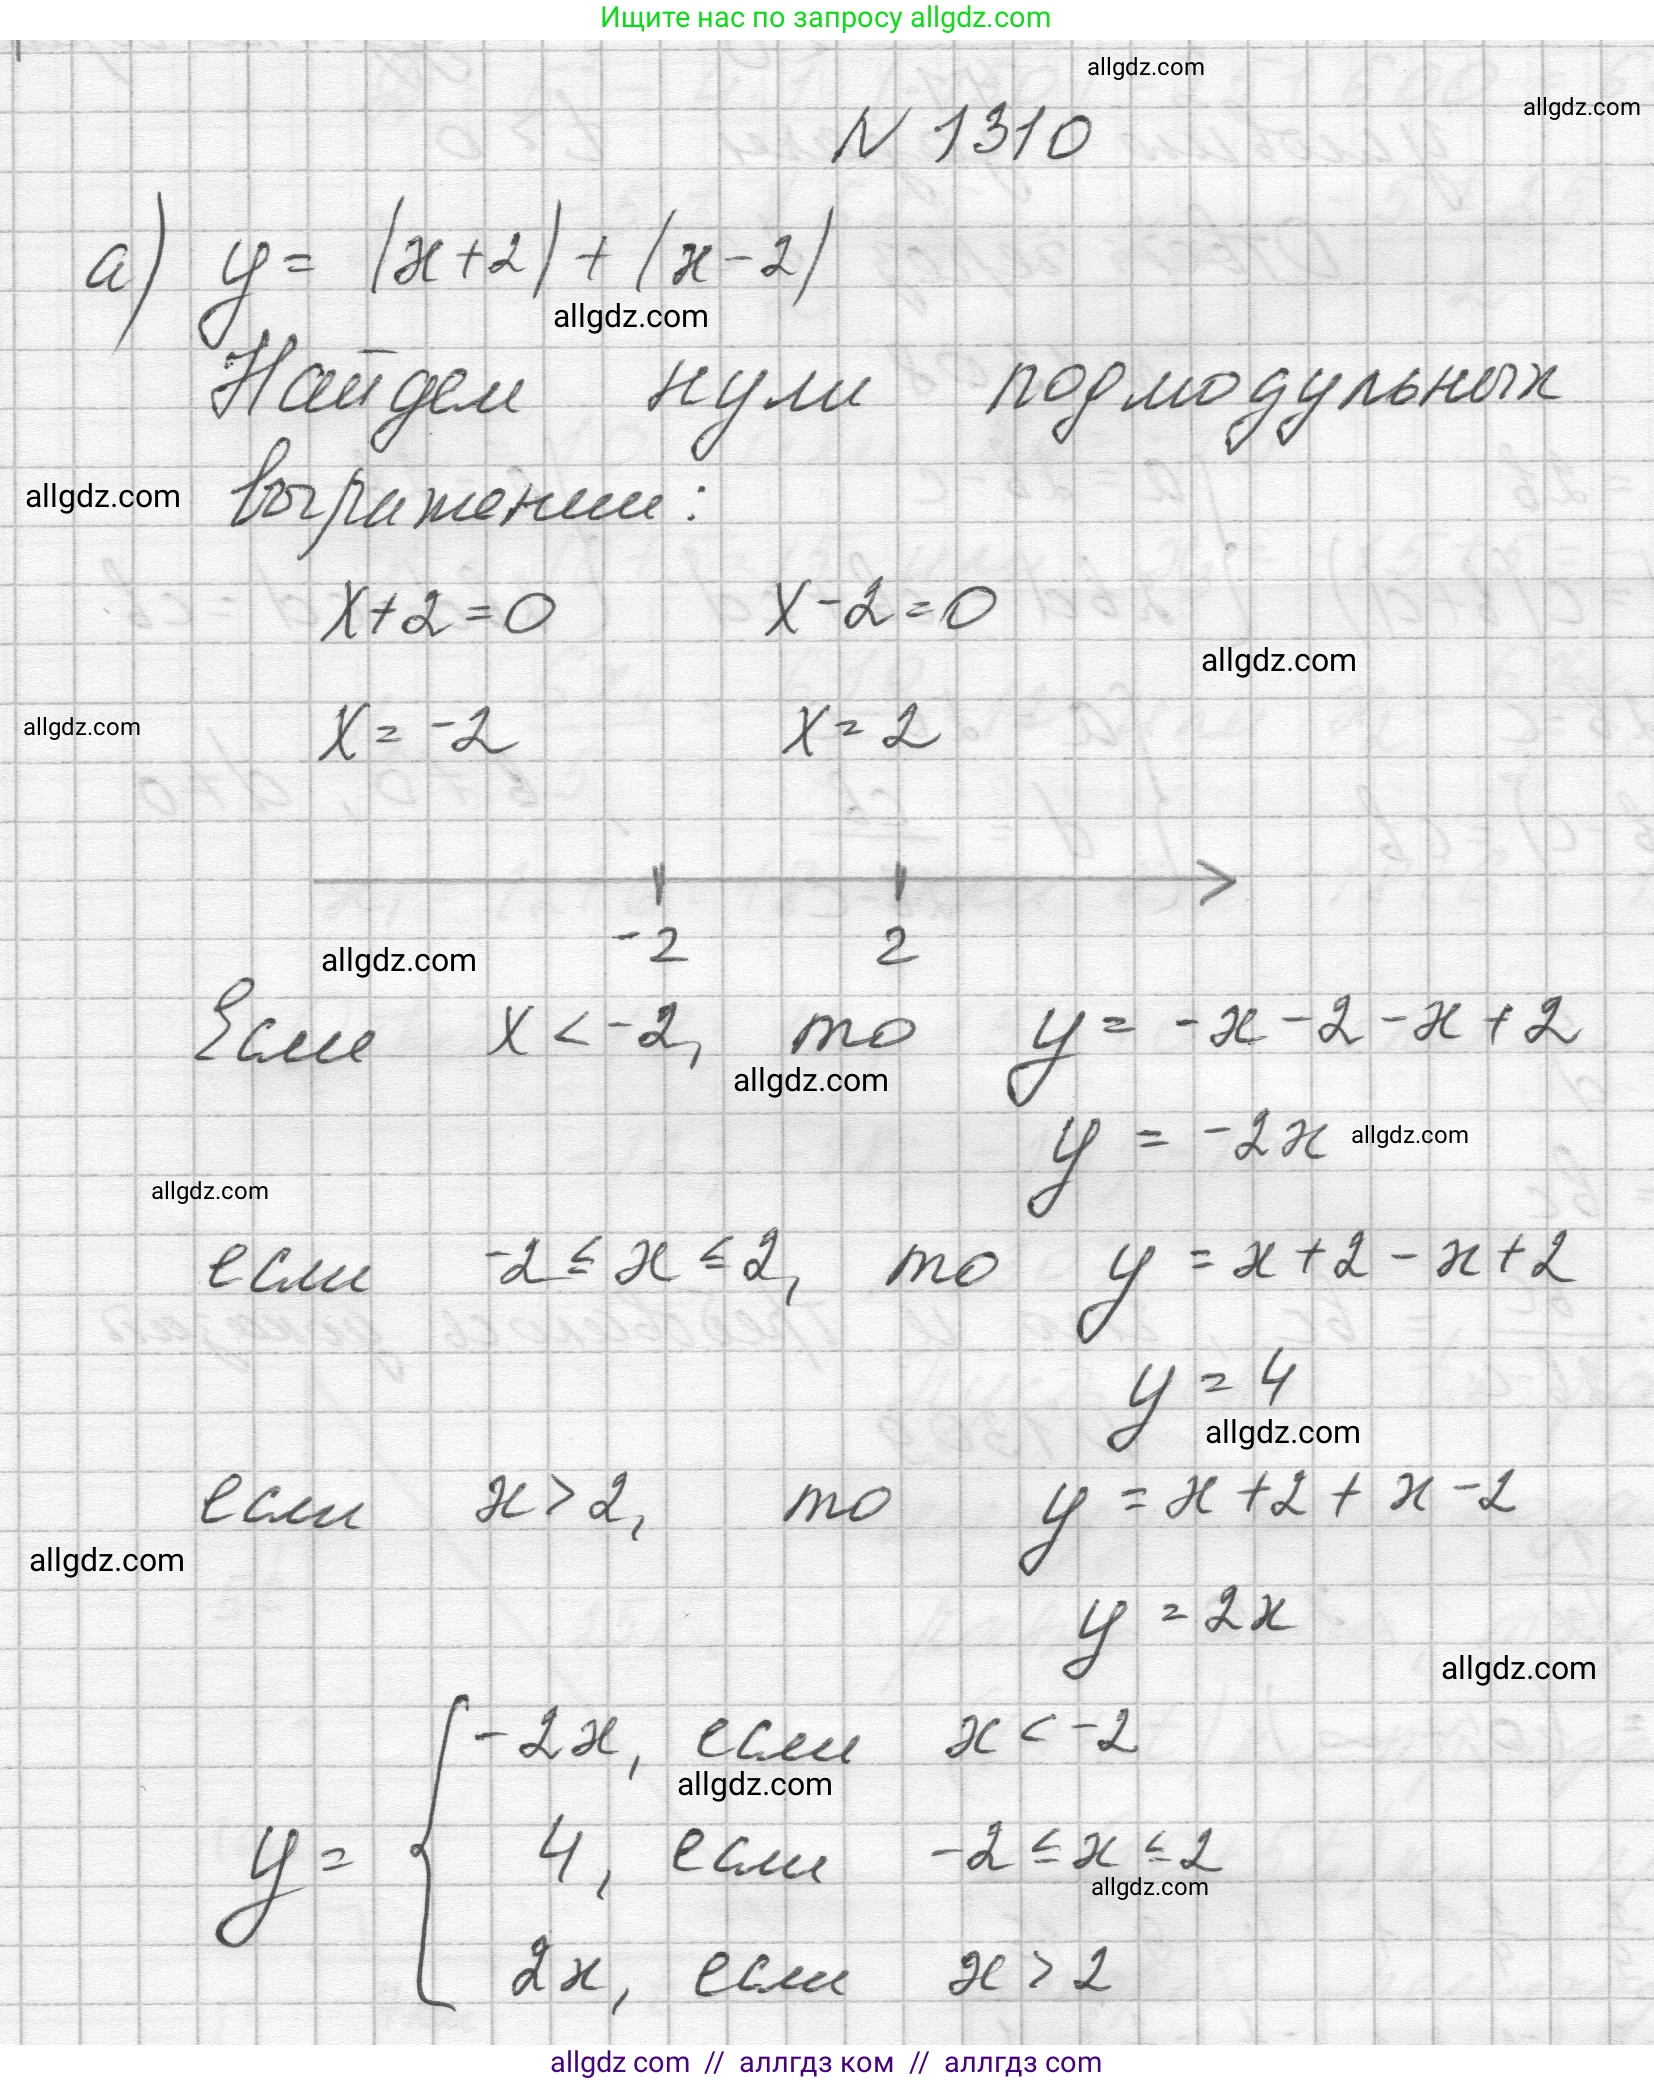 Ищите нас по запросу allgdz.com
allgdz.com
allgdz.com
N 1310
а) y = |x+2| + |x-2|
allgdz.com
Найдем нули подмодульных
allgdz.com выражении:
x+2=0 x-2=0
allgdz.com
allgdz.com x=-2 x=2
-2 2
allgdz.com
Если x<-2, то y = -x-2-x+2
allgdz.com
y = -2x allgdz.com
allgdz.com
если -2≤x≤2, то y = x+2-x+2
y = 4
allgdz.com
если x>2, то y = x+2+x-2
allgdz.com
y = 2x
allgdz.com
-2x, если x<-2
allgdz.com
y = { 4, если -2≤x≤2
allgdz.com
2x, если x>2
allgdz com // аллгдз ком // аллгдз com